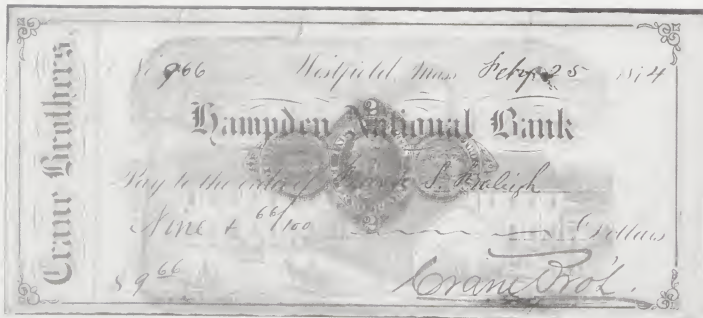 Crane Brothers,
No 966 Westfield, Mass. Feby 25 1874
Hampden National Bank
Pay to the order of S. Raleigh
Nine & 66/100 Dollars
$9 66
Crane Bro's.